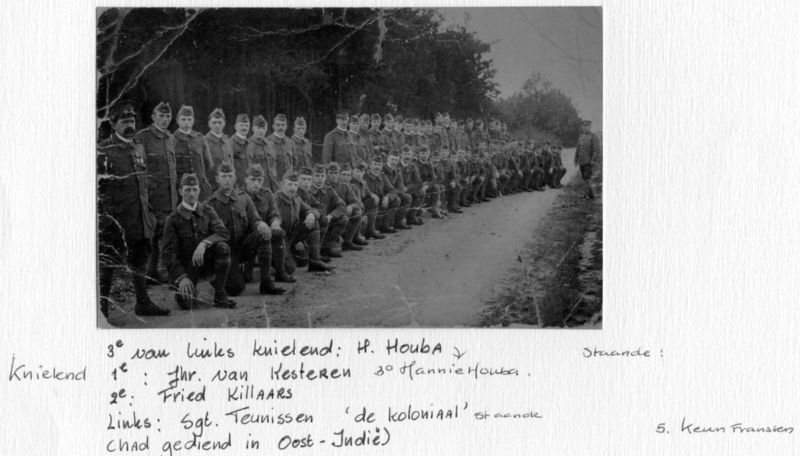 3e van links knielend: H. HOUBA
Staande:
Knielend 1e: Jhr. van Kesteren 3e Hannie Houba.
2e: Fried KillAARS
Links: Sgt. Teunissen 'de koloniaal' staande
(had gediend in Oost-Indië)
5. Keun Franssen